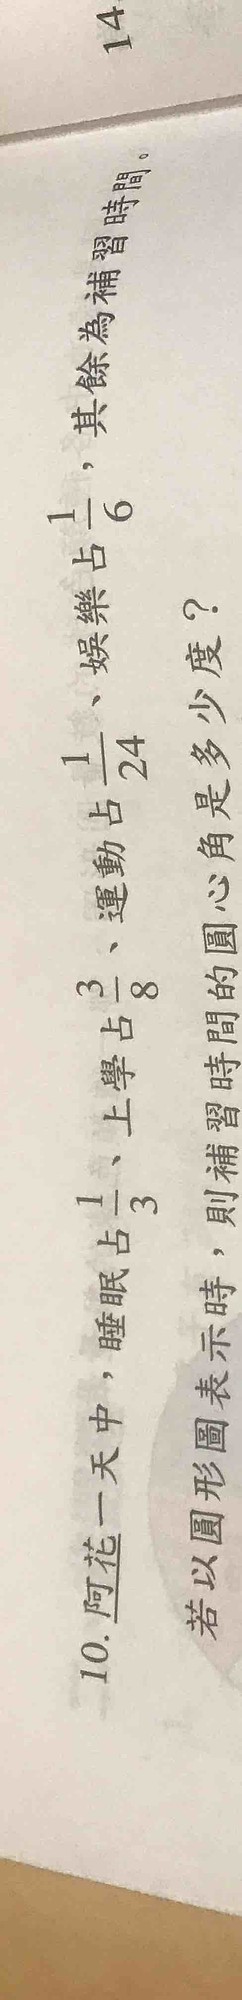 14
10. 阿花一天中，睡眠占1/3、上學占3/8、運動占1/24、娛樂占1/6，其餘為補習時間。
若以圓形圖表示時，則補習時間的圓心角是多少度？